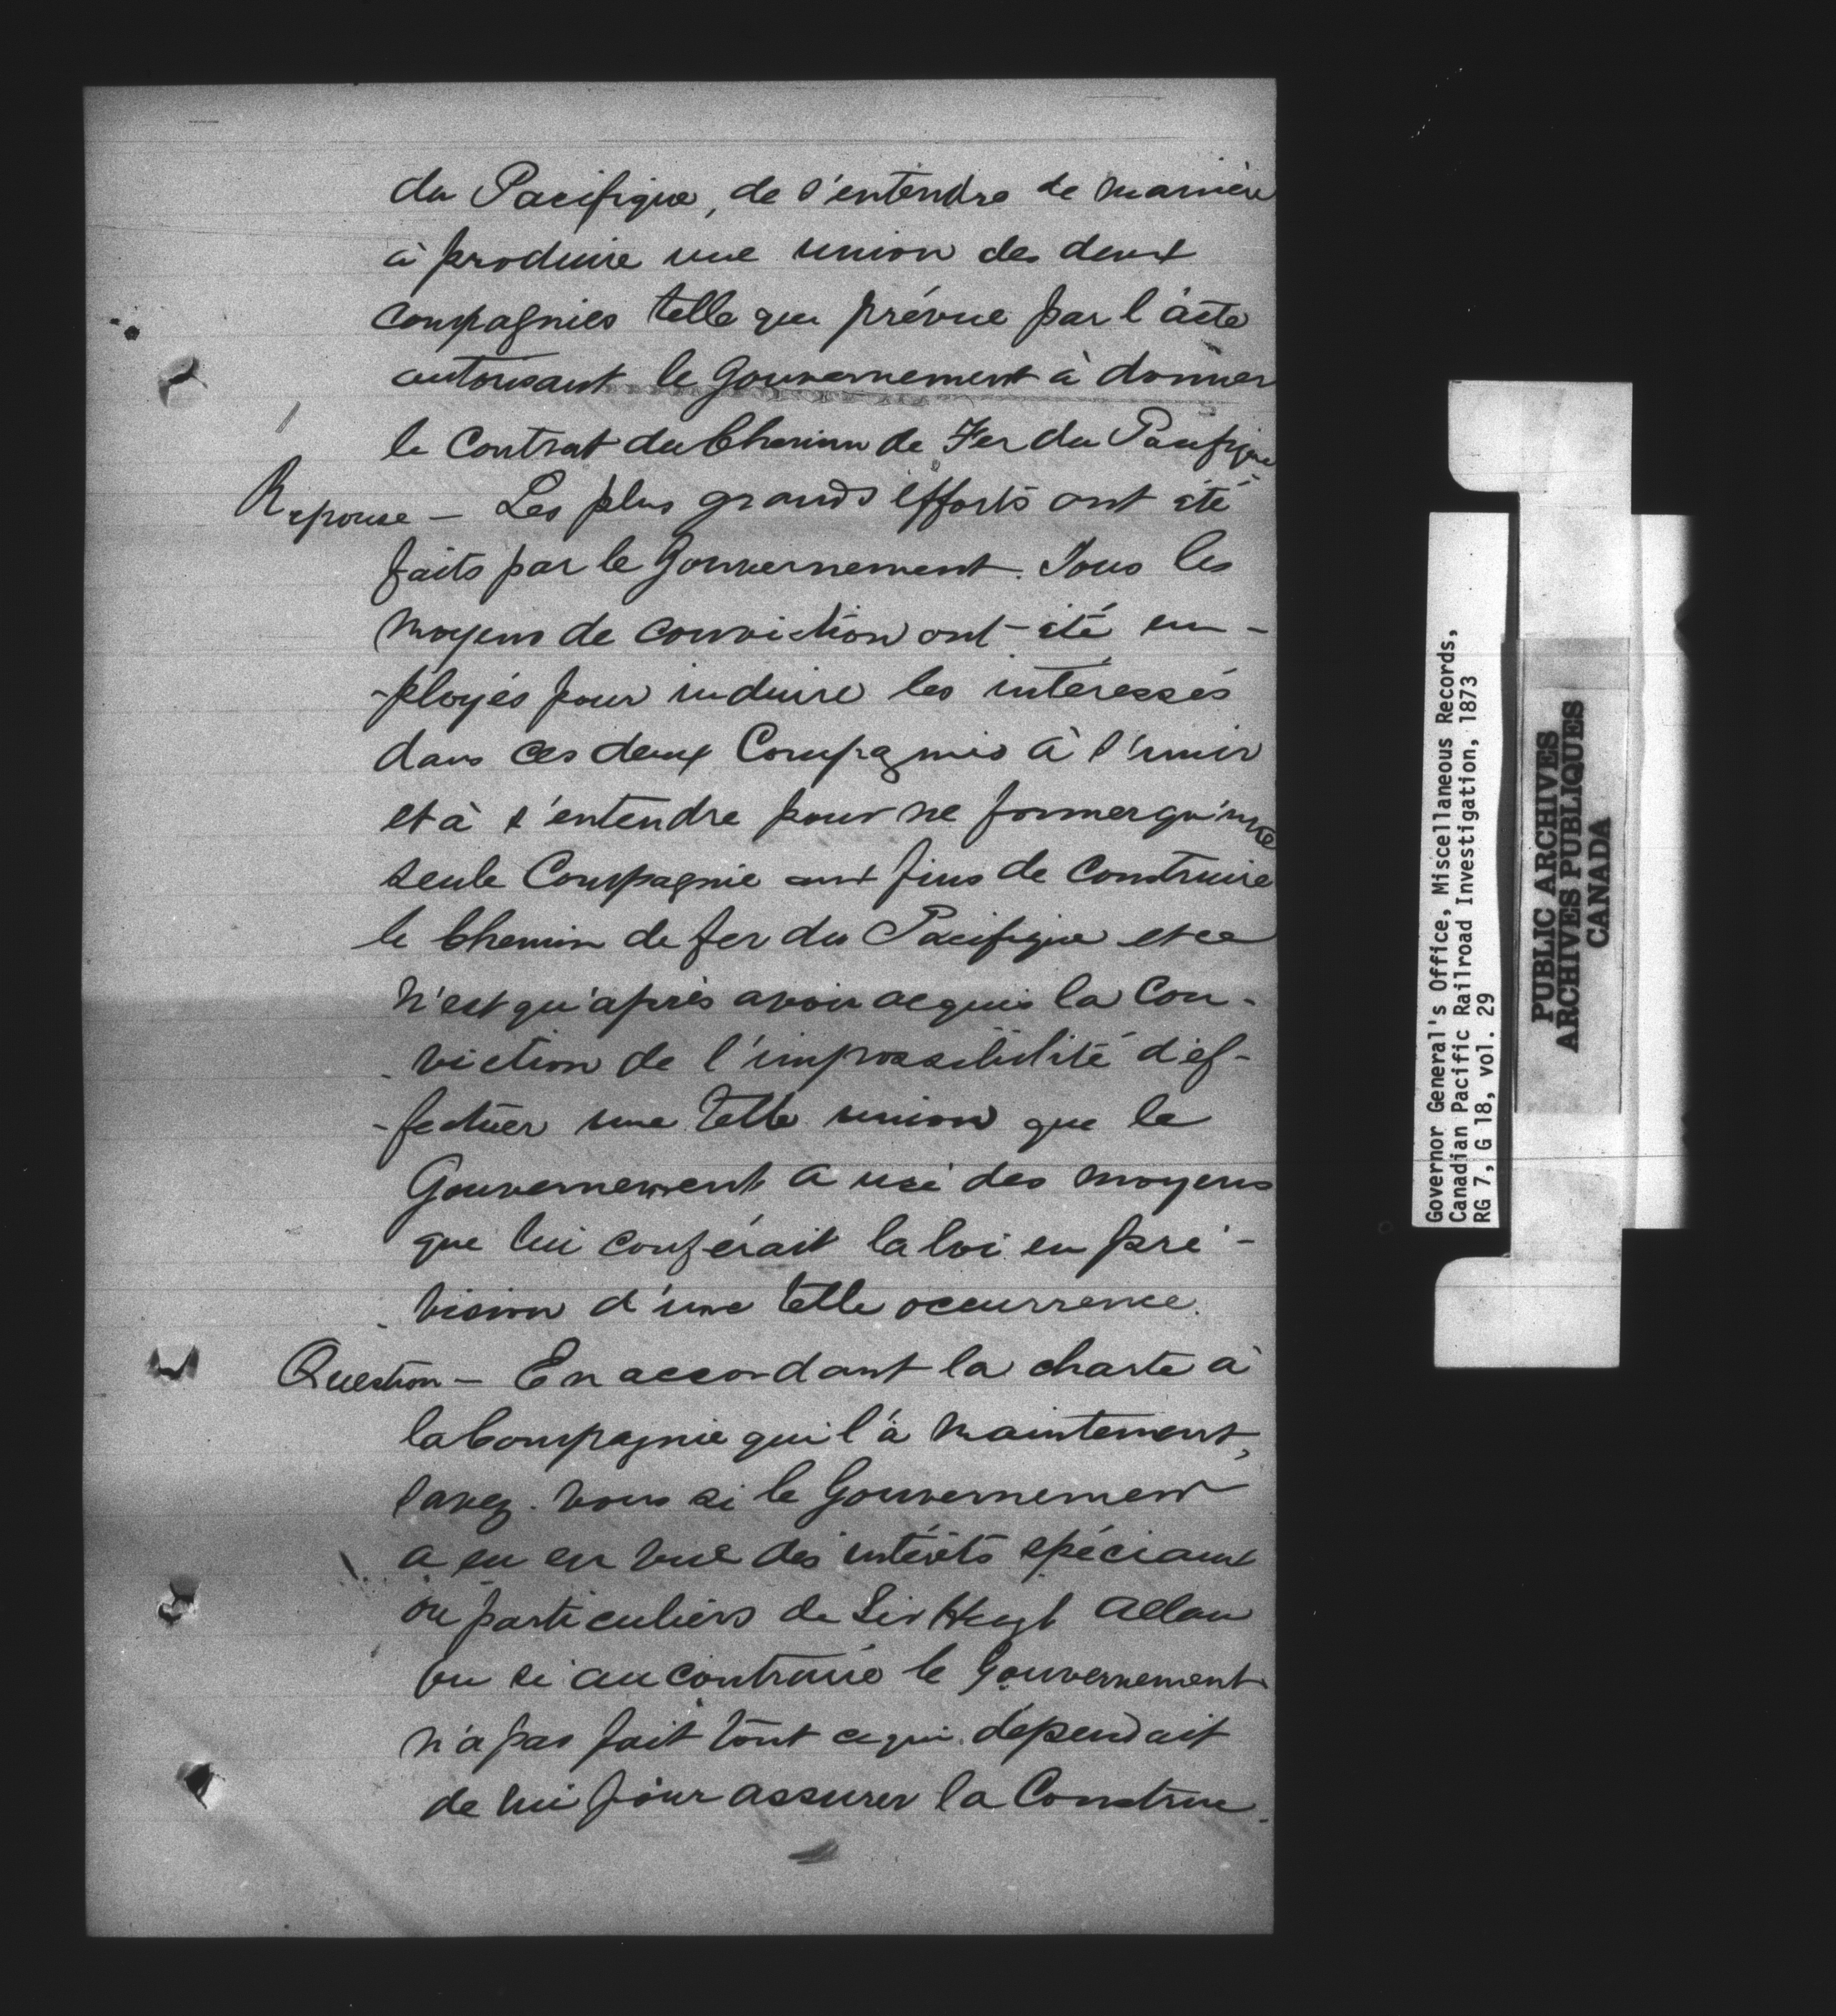 du Pacifique, de s'entendre de manière
à produire une union des deux
compagnies telle que prévue par l'acte
autorisant le Gouvernement à donner
le Contrat du Chemin de Fer du Pacifique
Reponse – Les plus grands efforts ont été
faits par le Gouvernement. Tous les
moyens de conviction ont-été em-
-ployés pour induire les intéressés
dans ces deux Compagnies à s'unir
et à s'entendre pour ne former qu'une
seule Compagnie aux fins de construire
le Chemin de fer du Pacifique et ce
n'est qu'après avoir acquis la Con-
-viction de l'impossibilité d'ef-
-fectuer une telle union que le
Gouvernement a usé des moyens
que lui conférait la loi en pré-
-vision d'une telle occurrence.
Question – En accordant la charte à
la Compagnie qui l'a maintenant,
savez-vous si le Gouvernement
a eu en vue des intérêts spéciaux
ou particuliers de Sir Hugh Allan
ou si au contraire le Gouvernement
n'a pas fait tout ce qui dépendait
de lui pour assurer la Construc-
Governor General's Office, Miscellaneous Records,
Canadian Pacific Railroad Investigation, 1873
RG 7, G 18, vol. 29
PUBLIC ARCHIVES
ARCHIVES PUBLIQUES
CANADA